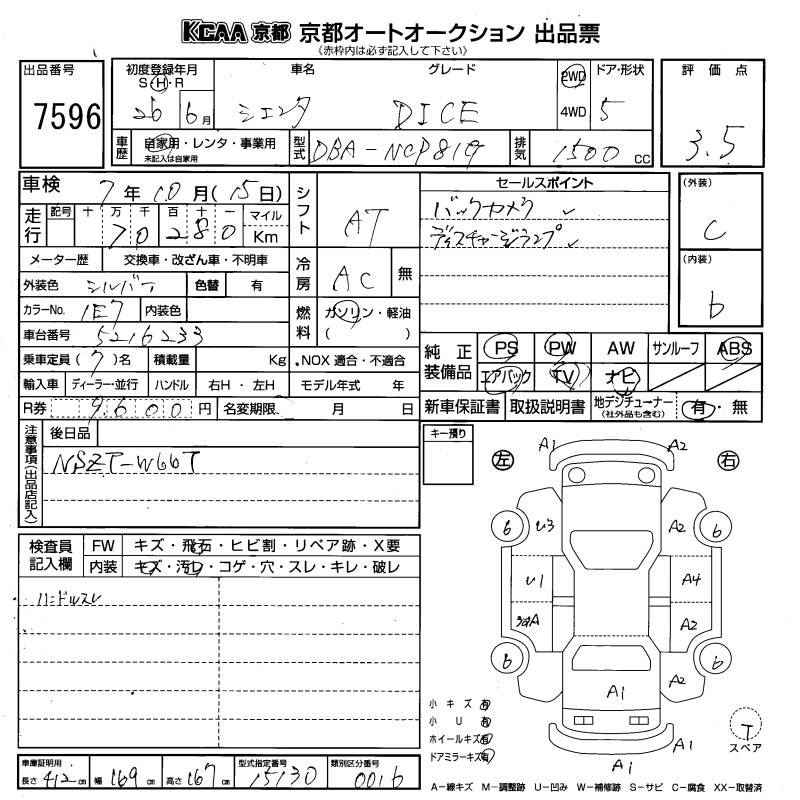 KCAA 京都 京都オートオークション 出品票
《赤枠内は必ず記入して下さい》
出品番号 初度登録年月 車名 グレード ドア・形状 評価点
S・H・R
7596 26 6月 シエンタ DICE 2WD 4WD 5 3.5
車歴 自家用・レンタ・事業用 型式 DBA-NCP81G 排気 1500 CC
未記入は自家用
車検 7年10月(15日) シフト AT セールスポイント (外装) C
走行 記号 十 万 千 百 十 一 マイル Km
70280
バックカメラ
ディスチャージランプ
メーター歴 交換車・改ざん車・不明車 冷房 AC 無 (内装) b
外装色 シルバー 色替 有
カラーNo. 1E7 内装色 燃料 ガソリン・軽油
( )
車台番号 5216233
乗車定員(7)名 積載量 Kg NOX 適合・不適合
純正装備品 PS PW AW サンルーフ ABS
エアバック TV ナビ
輸入車 ディーラー・並行 ハンドル 右H・左H モデル年式 年
R券 9600円 名変期限 月 日
新車保証書 取扱説明書 地デジチューナー 有・無
(社外品も含む)
注意事項(出品店記入) 後日品
NSZT-W66T
キー預り
左 右
A1 A2
6 U3 A2 6
U1 A4
A A2
6 A2 6
A1
A1 A2
A1
検査員記入欄 FW キズ・飛石・ヒビ割・リペア跡・X要
内装 キズ・汚レ・コゲ・穴・スレ・キレ・破レ
ハンドルスレ
小キズ 有
小U 有
ホイールキズ 有
ドアミラーキズ 有
T
スペア
車庫証明用 長さ 412cm 幅 169cm 高さ 167cm 型式指定番号 15130 類別区分番号 0016
A―線キズ M―調整跡 U―凹み W―補修跡 S―サビ C―腐食 XX―取替済